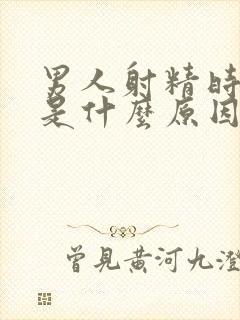 男人射精時
是什麼原因
曾見黃河九澄